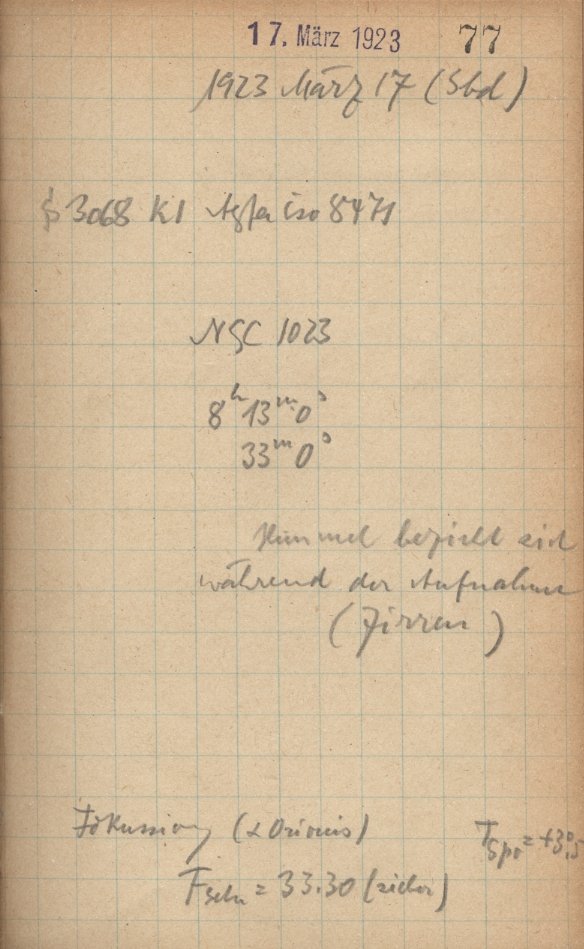 17. März 1923 77
1923 März 17 (Sbd)
3068 K1 Agfa iso 8471
NGC 1023
8h 13m 0s
33m 0s
Himmel bezieht sich
während der Aufnahme
(Zirren)
Fokussierung (α Orionis)
F = 33.30 (sicher)